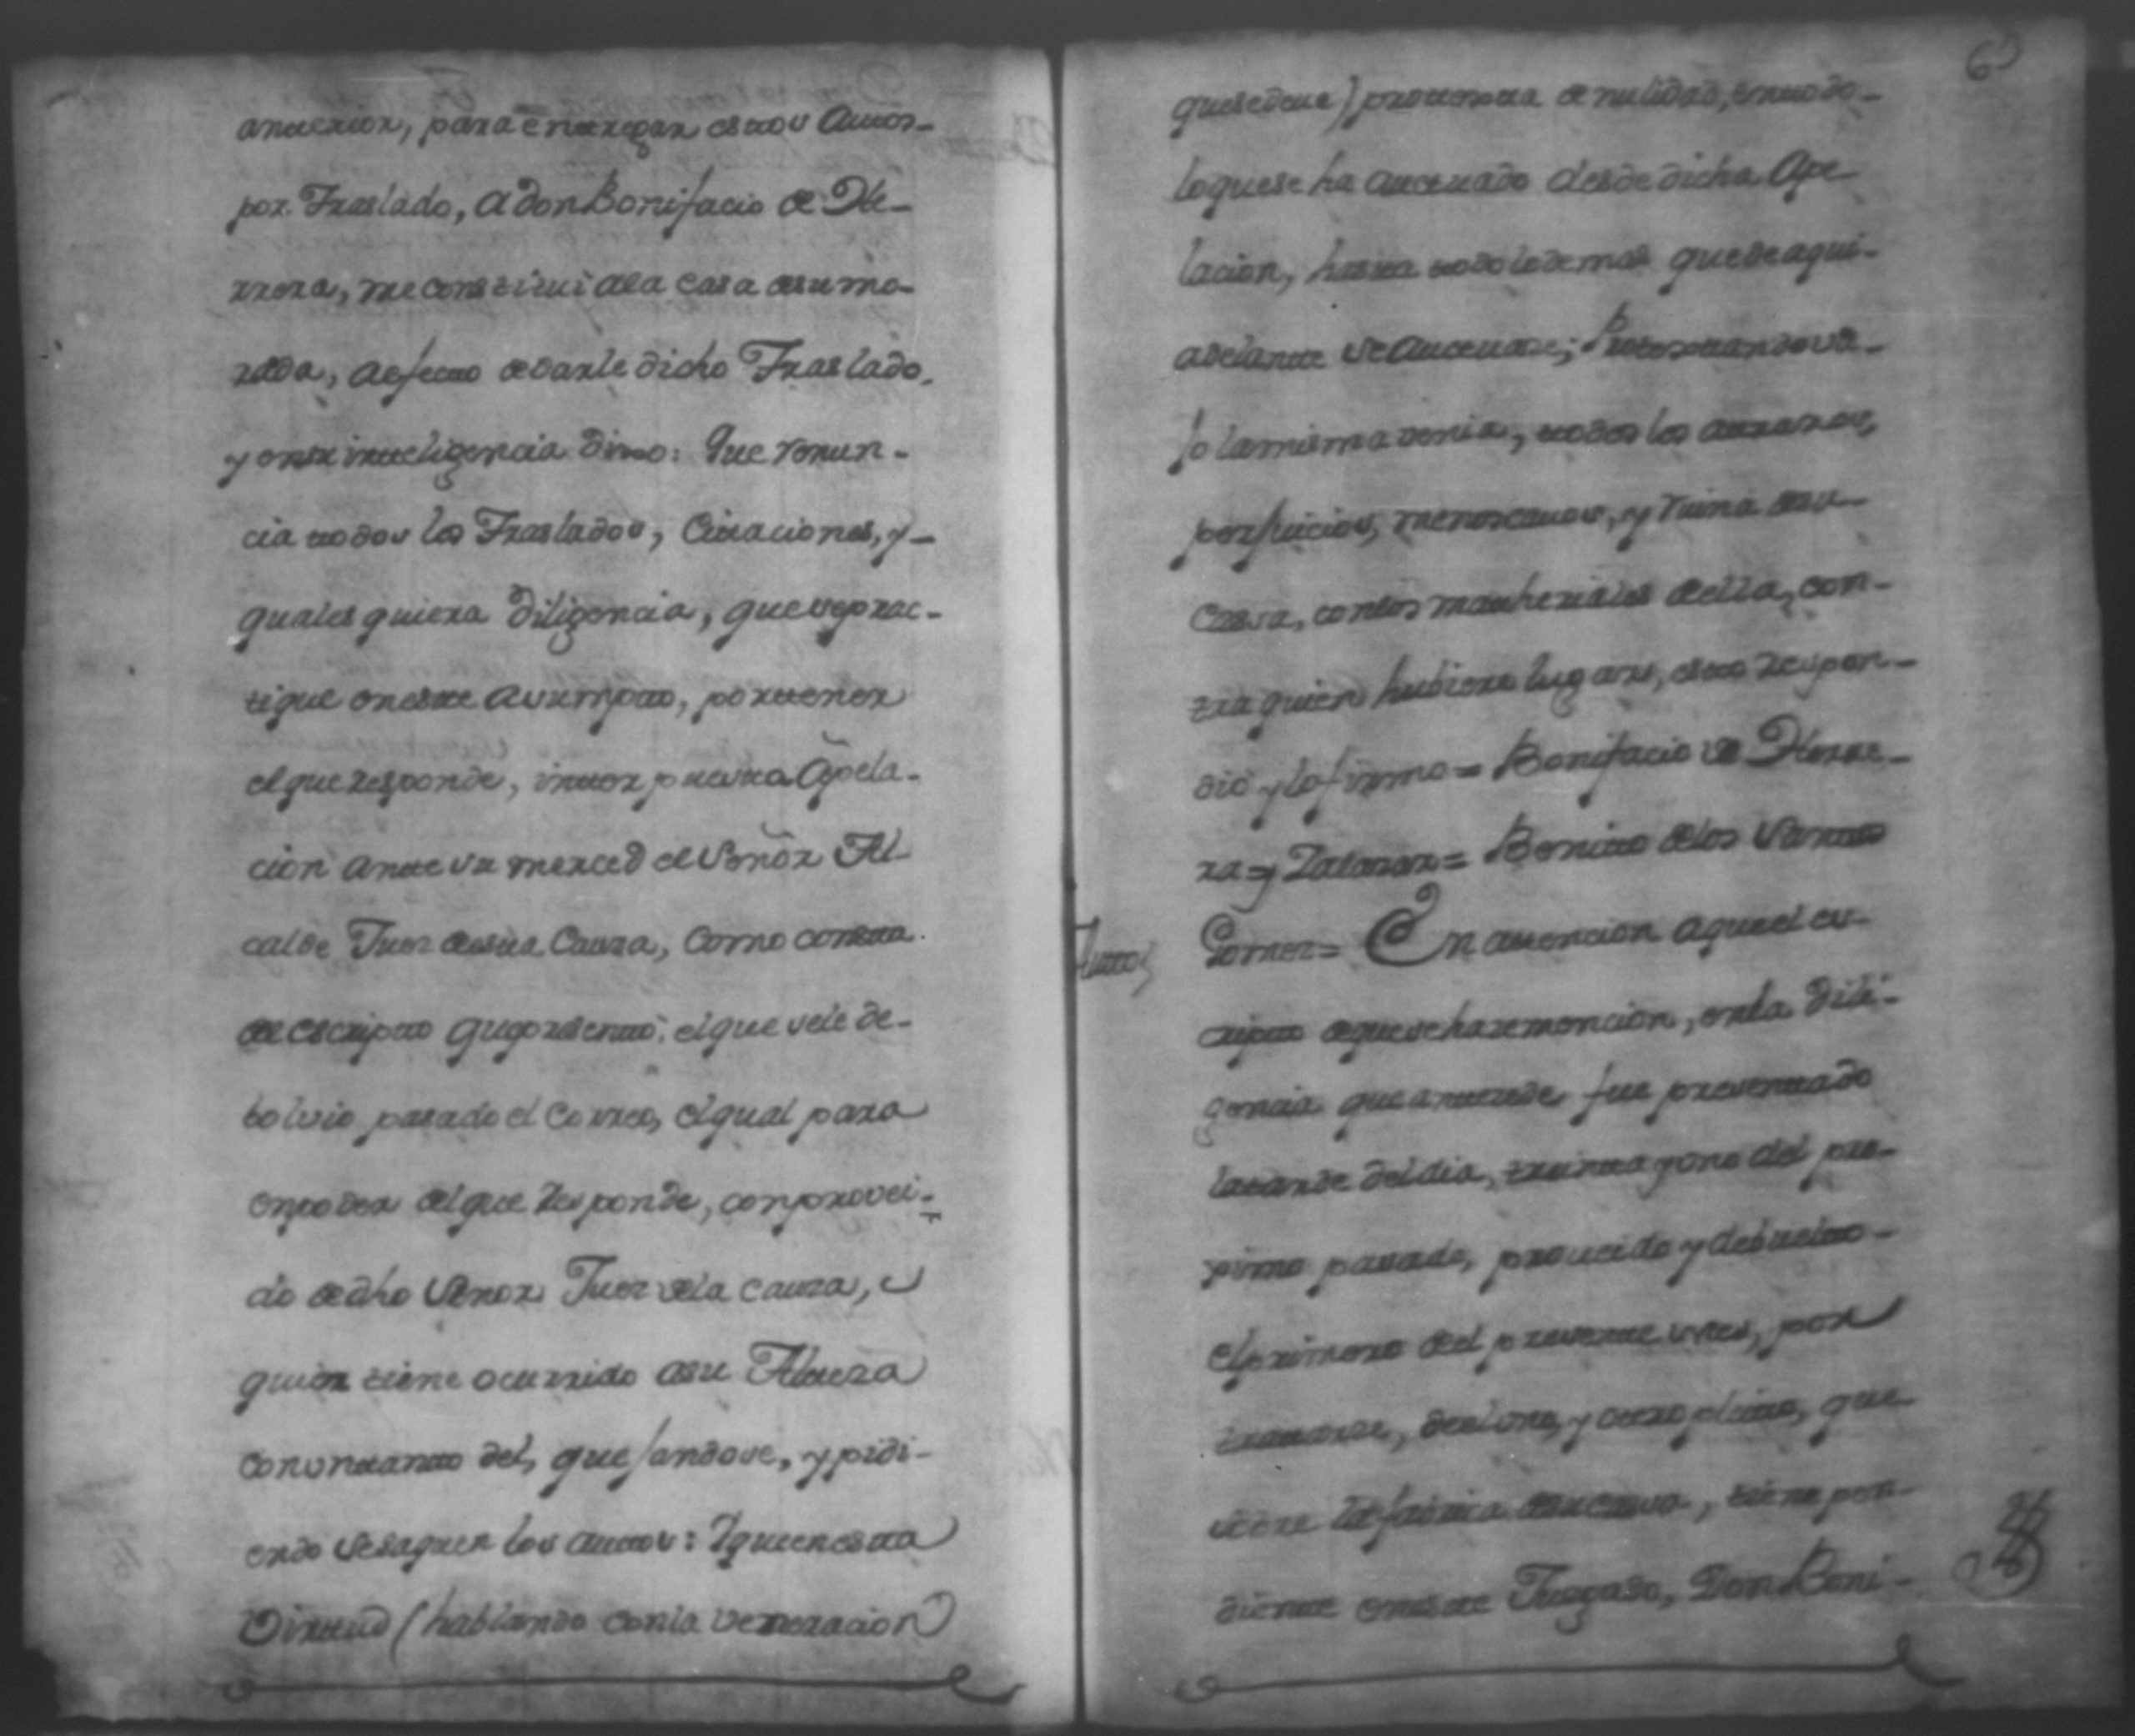 anterior, para entregar estos Autos-
por Traslado, a don Bonifacio de He-
rrera, me constitui ala casa de su mo-
rada, a efecto de darle dicho Traslado,
y en su inteligencia dixo: Que renun-
cia todos los Traslados, Citaciones, y-
qualesquiera diligencia, que se prac-
tique en este asumpto, por tener
el que responde, interpuesta Apela-
cion ante su merced el Señor Al-
calde Juez de esta Causa, como consta
de escripto que presentó; el que se le de-
bolvio pasado el Correo, el qual para
en poder del que responde, con provei-
do de dho Señor Juez de la causa, e
quien tiene ocurrido a su Alteza
con un tanto del, quejandose, y pidi-
endo se saquen los autos: Y que en esta
Virtud (hablando con la veneracion
69
que se deve) protesta de nulidad, en todo-
lo que se ha actuado desde dicha Ape-
lacion, hasta todo lo demas que de aqui-
adelante se actuare; Protextando va-
jo la misma venia, todos los atrasos,
perjuicios, menoscavos, y ruina de su-
Cassa, con los matheriales della, con-
tra quien hubiere lugar, esto respon-
dió y lo firmo = Bonifacio de Herre-
ra y Zalazar = Benito de los Santos
Autto Gomez = En atencion a que el es-
cripto de que se haze mencion, en la dili-
gencia que antecede fue presentado
la tarde del dia, treinta y uno del pro-
ximo pasado, proveido y debuelto-
el primero del presente mes, por
tratarse, de el uno, y otro pleito, que
sobre la fabrica de su cassa, tiene pen-
diente en este Juzgado, Don Boni-